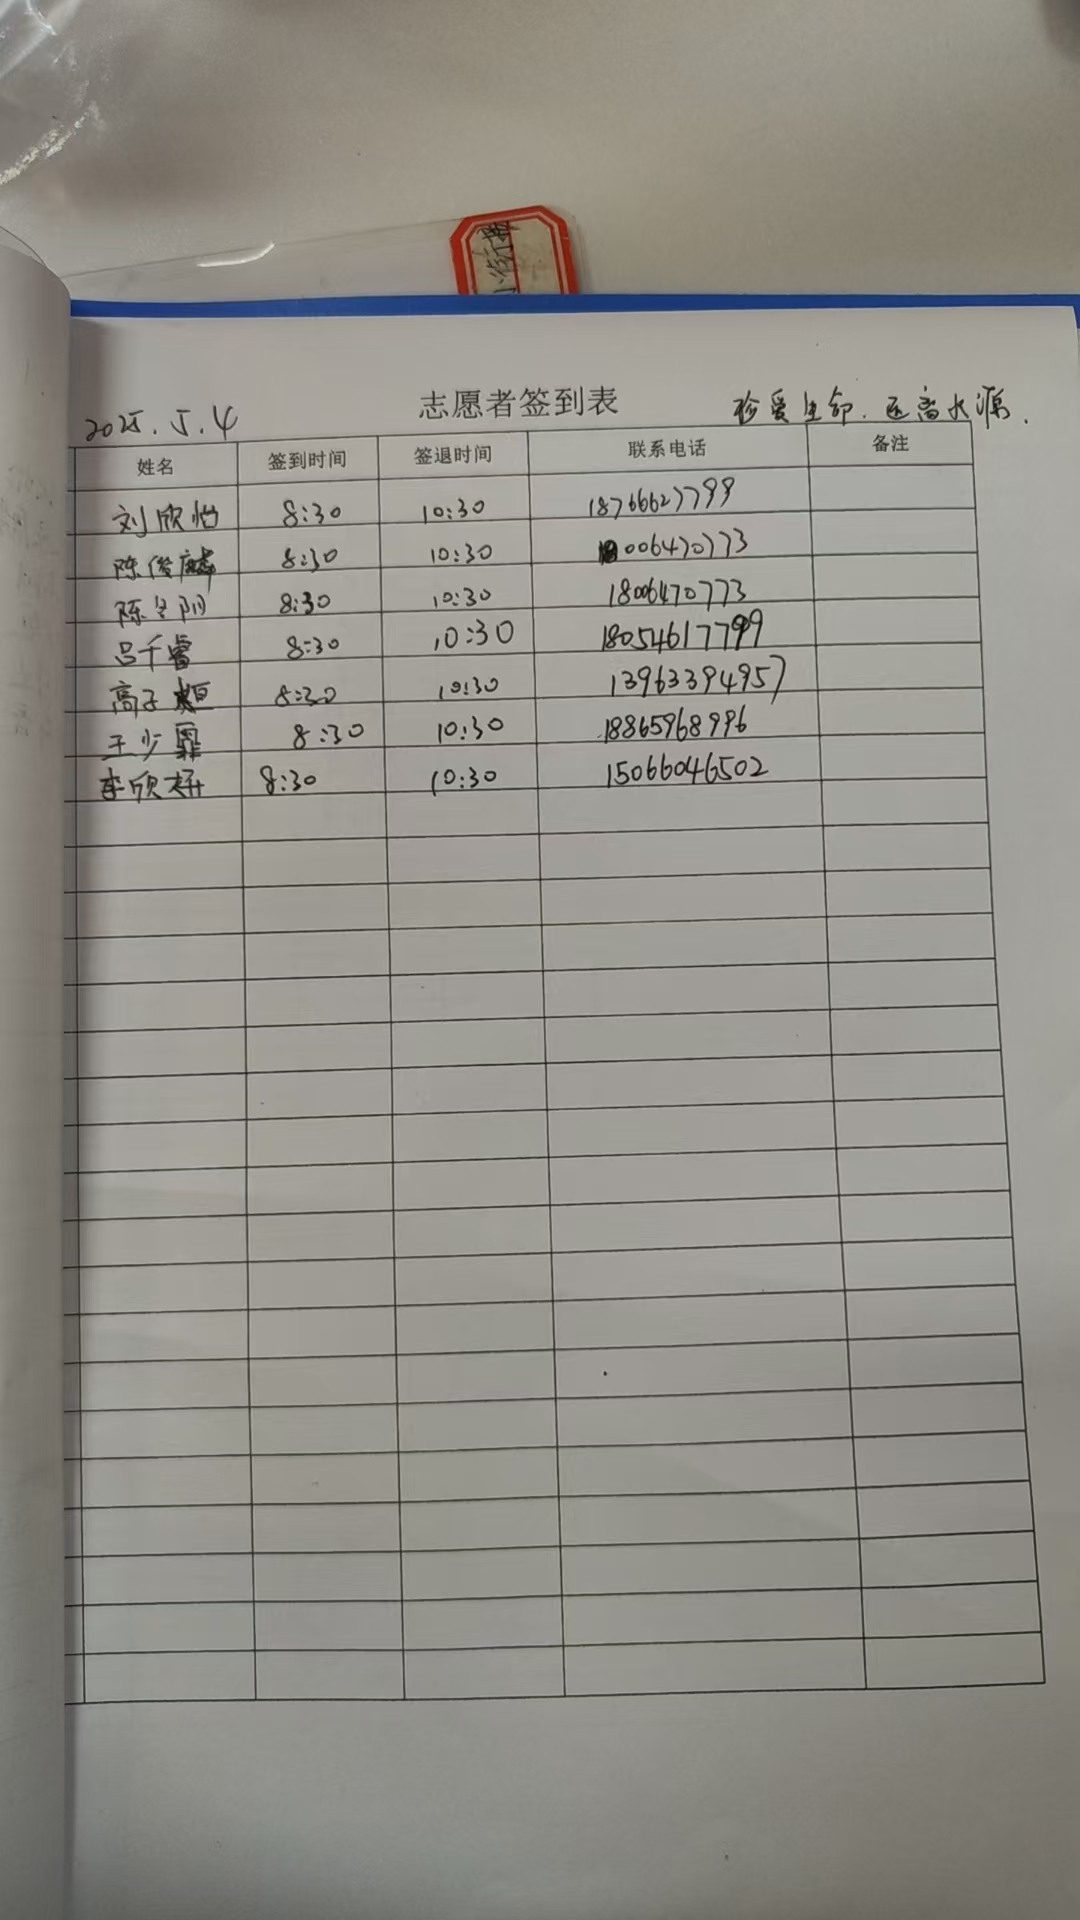 小街
2025.5.4 志愿者签到表 珍爱生命.远离水源.
姓名 签到时间 签退时间 联系电话 备注
刘欣怡 8:30 10:30 18766627799
陈俊麟 8:30 10:30 18006470773
陈 阴 8:30 10:30 18006470773
吕千睿 8:30 10:30 18054617799
高子 8:30 10:30 13963394957
王少 8:30 10:30 18865968996
李欣妍 8:30 10:30 15066046502